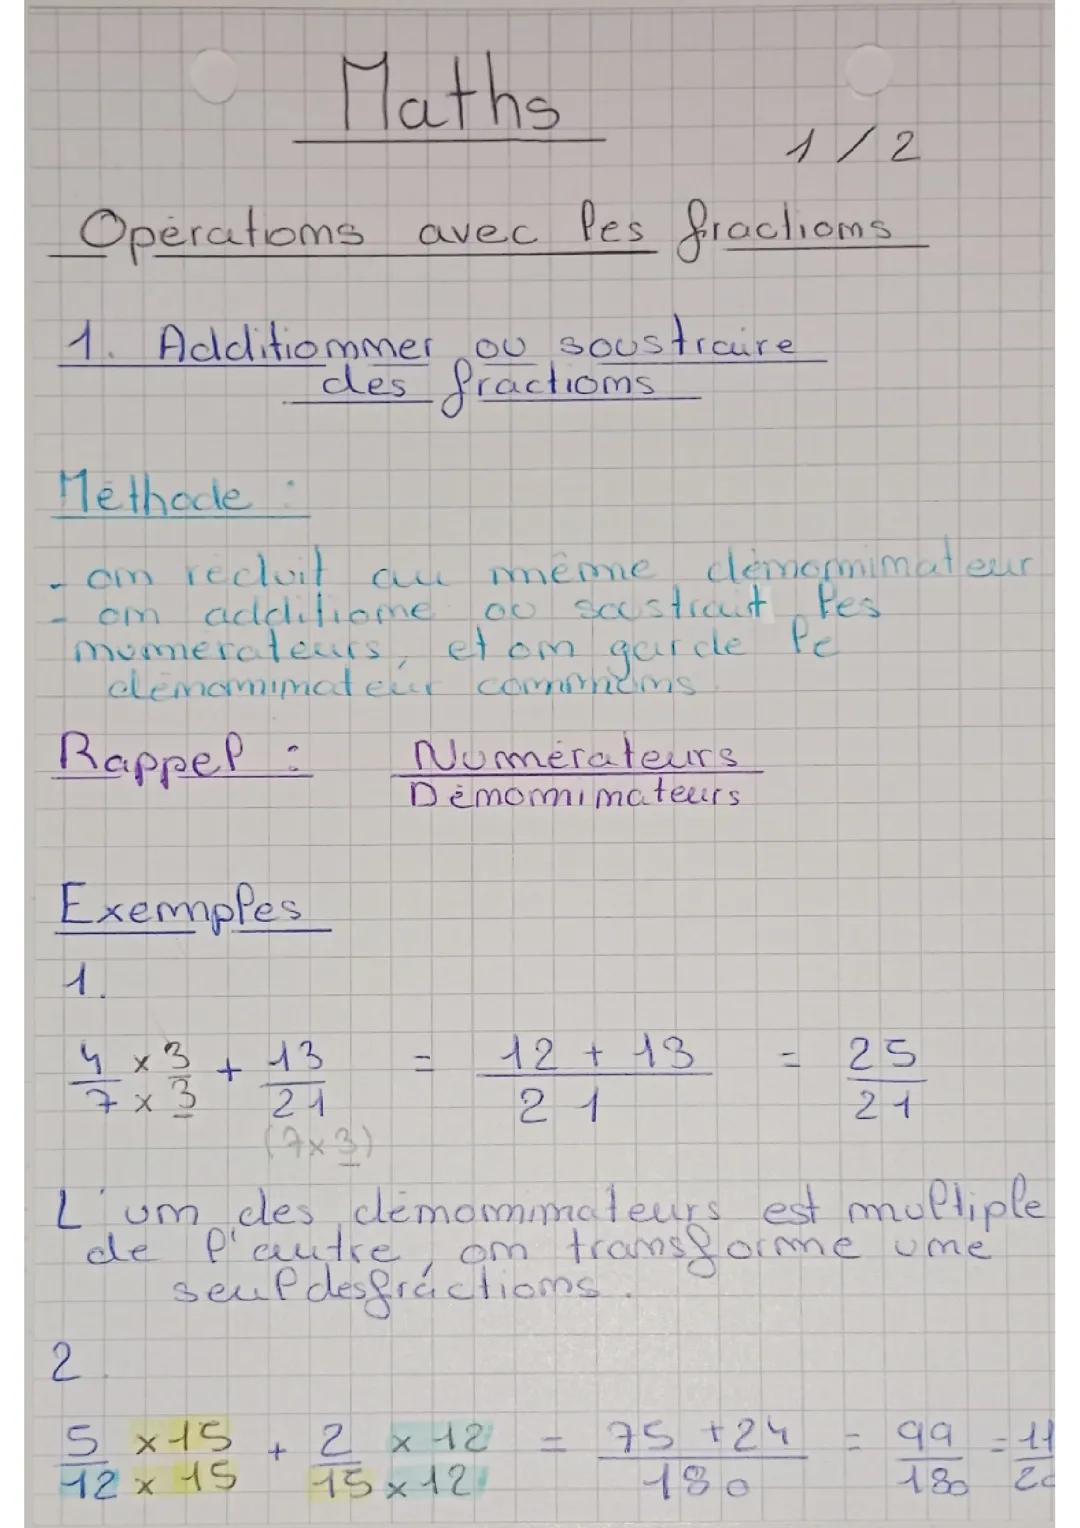 Maths
1/2
Opérations avec les fractions
1. Additionner ou soustraire
des fractions
Méthode :
- on réduit au même dénominateur
- on additione ou soustrait les
numérateurs, et on garde le
dénominateur communs
Rappel : Numérateurs
Dénominateurs
Exemples
1.
4/7 × 3/3 + 13/21 = (12 + 13)/21 = 25/21
(7×3)
L'un des dénominateurs est multiple
de l'autre, on transforme une
seul des fractions.
2.
5/12 ×15/×15 + 2/15 ×12/×12 = (75 + 24)/180 = 99/180 = 11/20